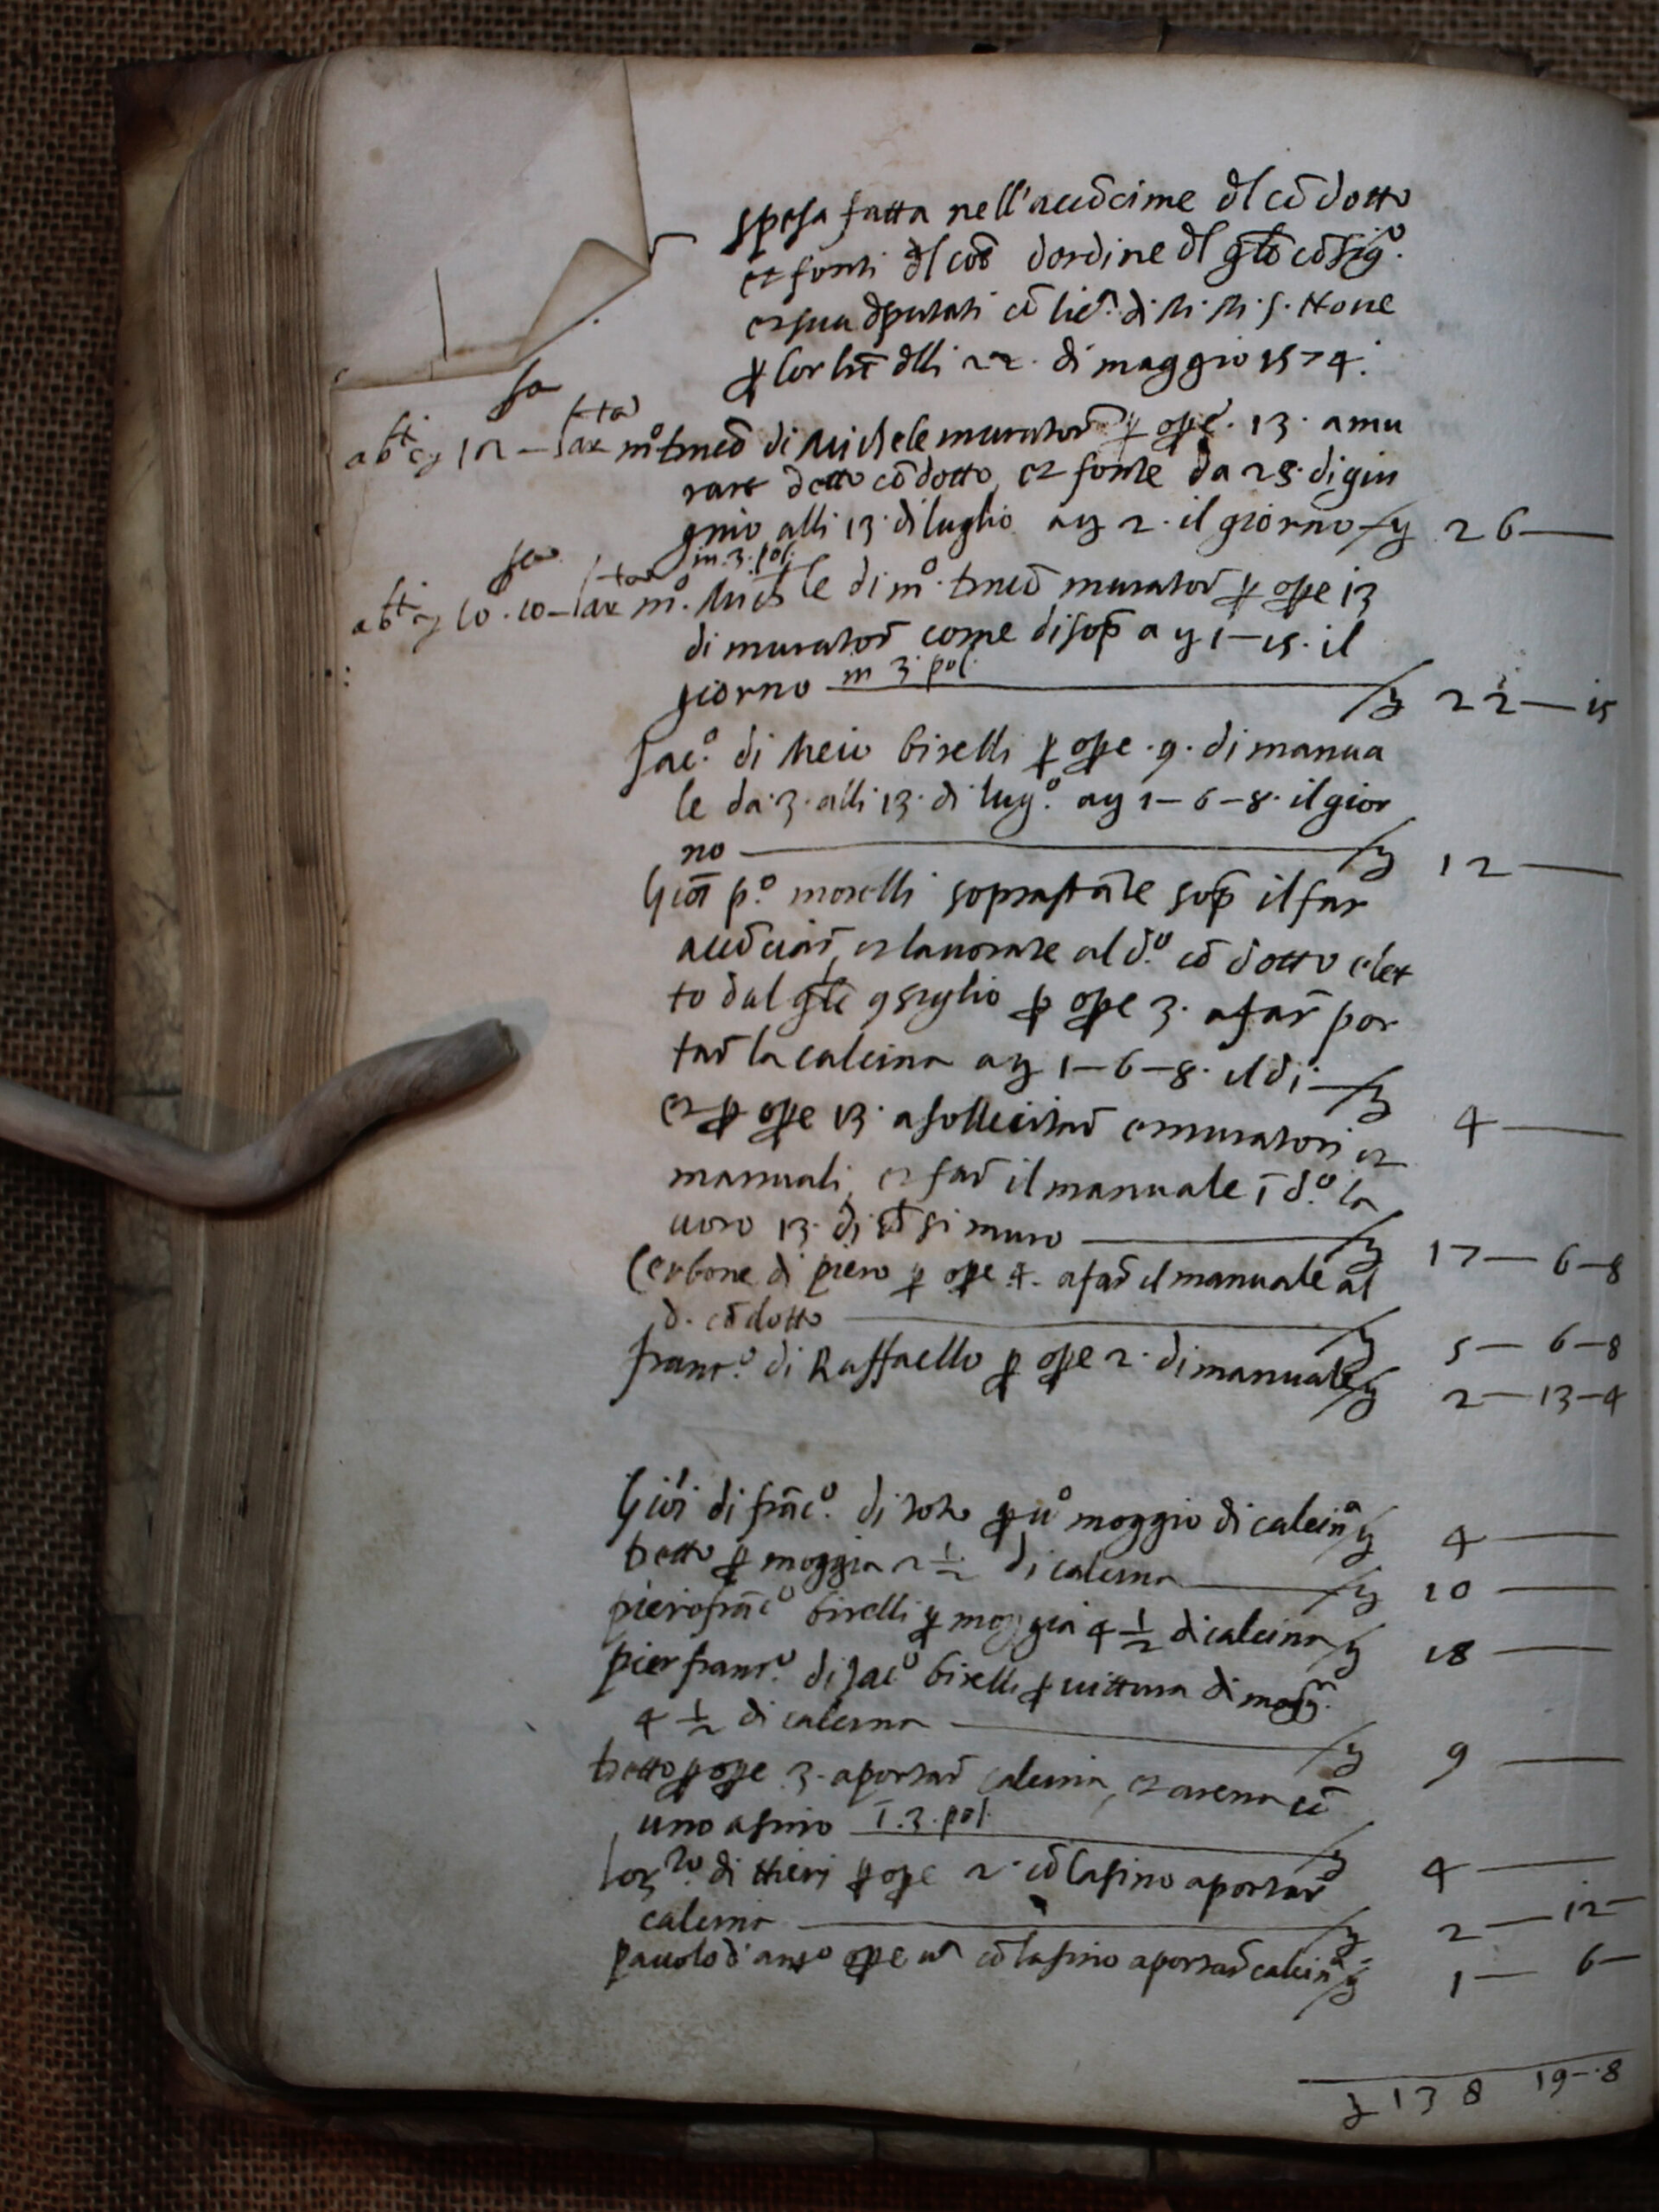 spesa fatta nell'accōcime dl cō dotto
et fonti dl coō dordine dl gīlō cōsigo.
et suu dputati cō lica. di
p lor lrē dlli 22. di maggio 1574.
abti y 12 — mo tmeō di Michele murator p ope. 13. a mu
rare detto cōdotto, et fonte da 28. di giu
gnio alli 13. di luglio a y 2. il giorno y 26 —
in .3. pol.
abti y 10 . 10 — mo. Michle di mo. tmeō murator p ope 13
di murator come disop a y 1 — 15. il
giorno in 3. pol. y 22 — 15
Jaco. di Meio birelli p ope .9. di manua
le da .3. alli 13. di lugo. a y 1 — 6 — 8. il gior
no y 12 —
Giōn po. morelli soprastāte sop il far
accōciar, et lavorare al do. cō dotto elet
to dal gīle 9siglio p ope 3. a far por
tar la calcina a y 1 — 6 — 8. il di — y 4 —
et p ope 13. a sollicitar e muratori et
manuali, et far il manuale ī do. la
uoro 13. di si muro y 17 — 6 — 8
Cerbone di piero p ope 4. a far il manuale al
d. cōdotto y 5 — 6 — 8
franco. di Raffaello p ope 2. di manuale y 2 — 13 — 4
Giōi di frāco. di toto p uo moggio di calcina y 4 —
detto p moggia 2 1/2 di calcina y 10 —
pierofrāco birelli p moggia 4 1/2 di calcina y 18 —
pier franco. di Jaco birelli p uittura di mogga.
4 1/2 di calcina y 9 —
detto p ope 3. a portar calcina, et arena cō
uno asino ī .3. pol. y 4 —
lorzo. di ttieri p ope 2. cō lasino a portar
calcina y 2 — 12 —
pauolo d'anto ope ua cō lasino a portar calcina y 1 — 6 —
y 138 19 — 8